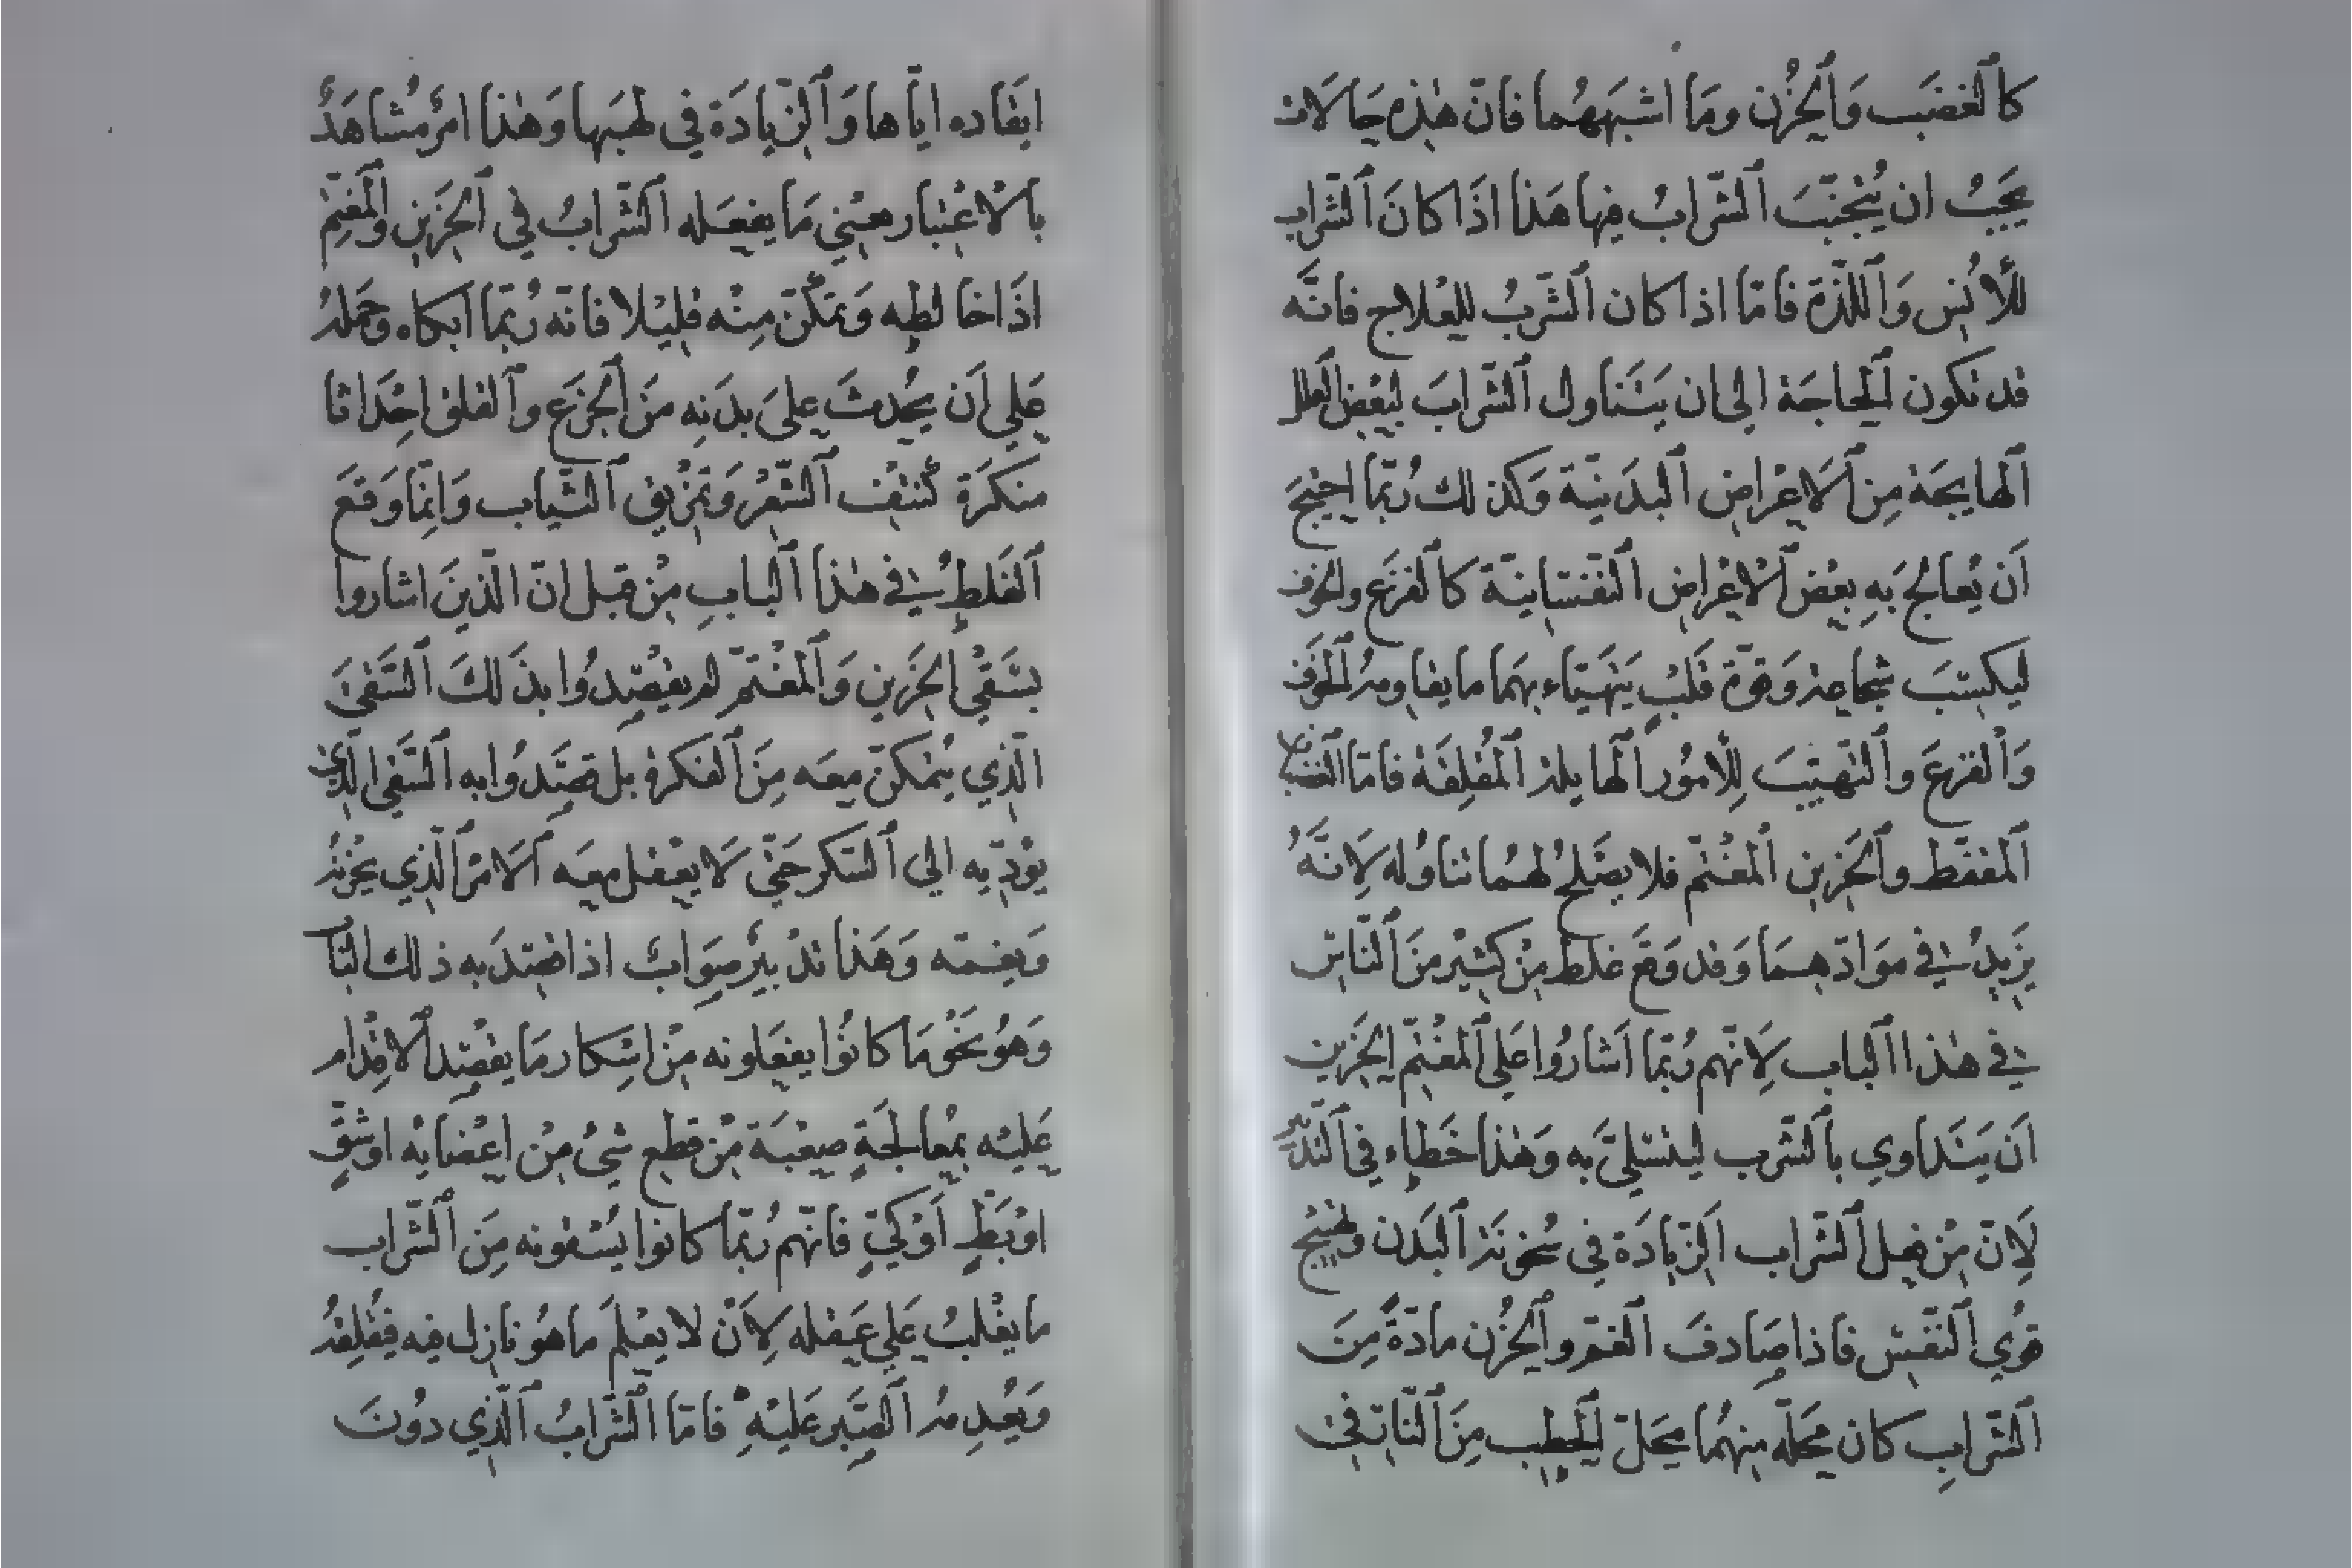 كالغضَب وَالحُزن ومَا اشبَههُما فانّ هٰذِه حَالات
يَجبُ ان يُتجنّبَ الشّرابُ فيها هَذا اذَا كانَ الشّراب
للأُنسِ وَاللّذّة فامّا اذا كان الشّربُ للعْلاج فانّه
قد تكون الحاجَة الى ان يَتَناول الشّرابَ لبعْض العلل
الهايجَة مِن الاَعْراض البدَنيّة وَكذلك رُبّما احتيجَ
اَن يُعالج بَهِ بعْض الاَعْراض النّفسَانيّة كالفزَع والخوف
ليكتسَبَ شجاعة وَقوّة قَلبْ يَتهَيّاء بهمَا ما يقاومُ الخوَف
وَالفزعَ والتّهيّبَ لِلأمُور الهايلة المُقلِقَة فامّا الغضبان
المفْفرط والحَزين المُغْتمّ فلا يصْلحُ لهُما تناوُله لِاَنّهُ
يزَيدُ في موَادّهِمَا وَقد وَقعَ غلطٌ مِنْ كثيْر منَ النّاسِ
في هٰذا البابِ لِاَنّهم رُبّما اَشارُوا عَلى المُغْتمّ الحَزين
اَن يَتَداوي بالشّرب ليتسَليَّ به وَهٰذا خَطاء في التّدبير
لِاَنّ مِنْ فعِل الشّراب الزّيادَة في سُخونَة البَدن وتهييج
قوُي النّفسْ فاذا صَادفَ الغمّ والحُزن مادّةً مِنَ
الشّرابِ كان محَلّه منهمُا محَلّ الحَطب مِنَ النّار في
ايقاده ايّاها وَالزّيادَة في لهبَها وَهٰذا امرٌ مُشاهَدٌ
بالاعْتبار معْني مَا يفعَله الشّرابُ في الحَزين والمُغتمّ
اذَا خالطه وَتمكّنَ مِنْه قليْلا فانّه رُبّما ابكاه وحَمَله
عَلي اَن يحُدثَ علىَ بدَنِه مَن الجزَع والقلق احَداثا
منكرَة كنتْف الشّعْر وَتمزْيق الثّياب وَانمّا وَقعَ
الغَلطُ في هٰذا البابِ مِنْ قبل انّ الّذينَ اشاروا
بسَقيْ الحَزين وَالمُغْتمّ لم يقصْدُوا بذَلكَ السّقىَ
الّذي يُتمكّن معَه مِنَ الفكرة بل قصَدُوا به السّقى الّذي
يؤدّيه الي السّكر حَتّي لَا يعْقل معَه الاَمْر الّذي يحْزنُه
وَيغمّه وَهَذا تدْبيرٌ صوَابٌ اذا قصدَ به ذلك الباب
وَهُو نَحْو مَا كانوُا يفعَلونه مِنْ اسْكار مَا يقصْد الاقْدام
عَليْه بمُعالجَةٍ صعْبَة مِنْ قطع شيءٍ مِن اعْضايه اوشَقٍّ
اوْبَطٍّ اَوْكيٍّ فانّهم رُبّما كانوا يُسْقونه مِنَ الشّراب
ما يغْلبُ عَلي عَقله لِاَنْ لا يعْلَم ما هُو نازل فيه فيُقلقهُ
وَيعُدِمهُ الصّبر عَليْهِ فامّا الشّرابُ الّذي دوُنَ